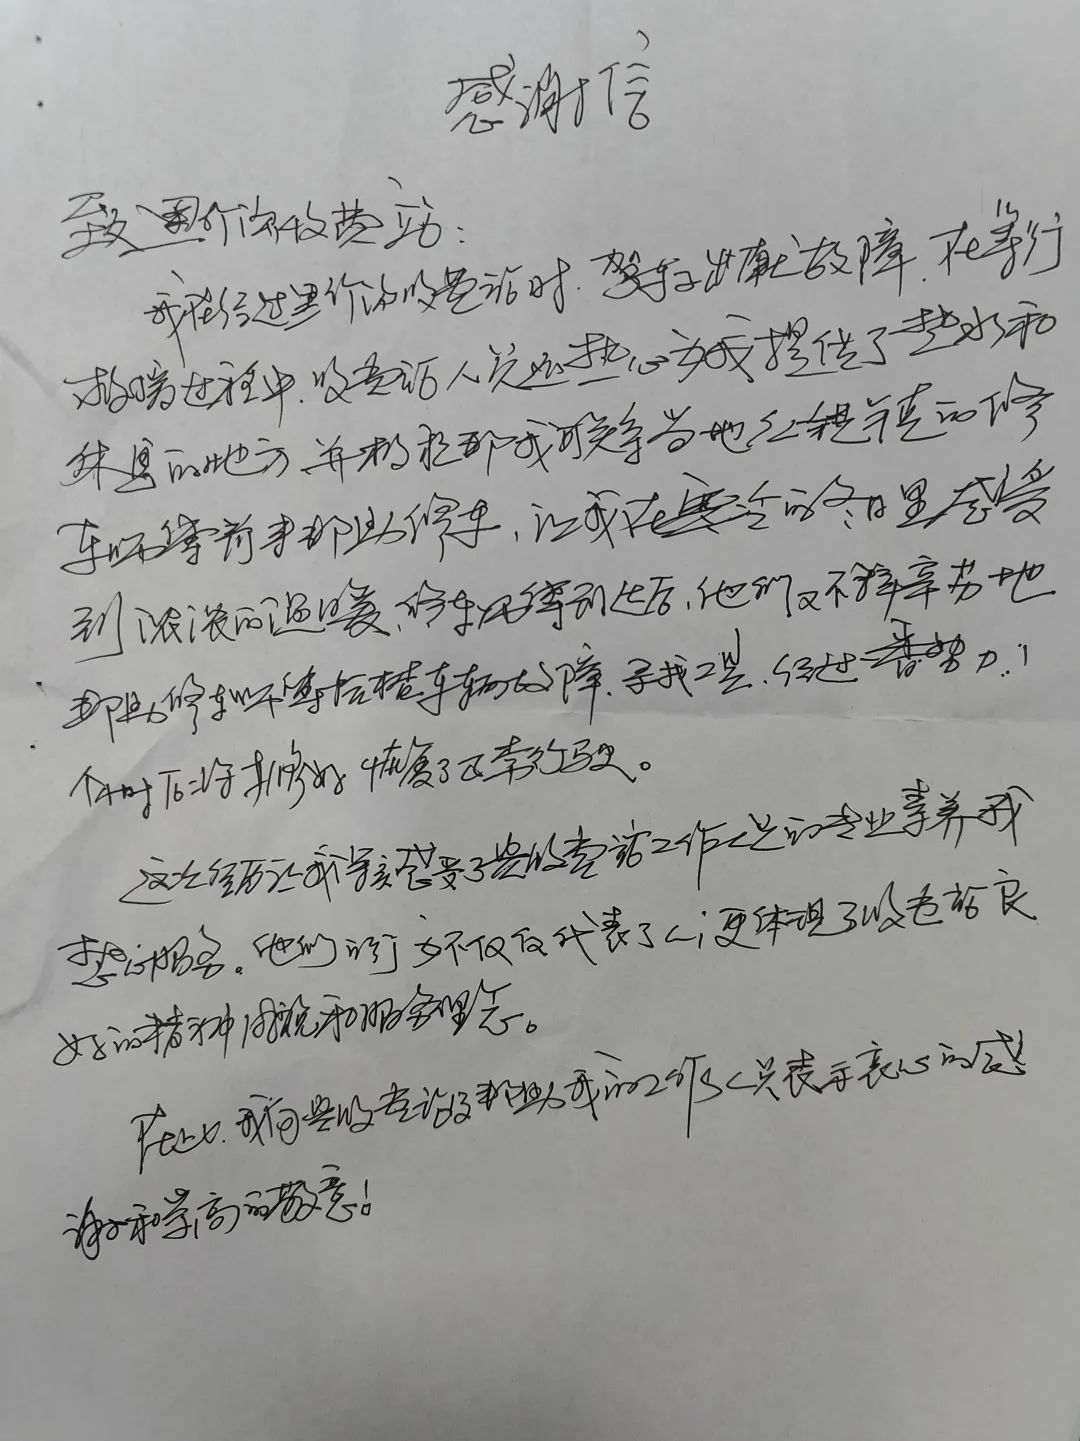 感谢信
致 收费站：
我在经过 收费站时，驾车子出现故障，在等待
救援过程中，收费站人员热心为我提供了热水和
休息的地方，并积极帮我联系当地 的修
车师傅前来帮助修车，让我在寒冷的冬日里感受
到浓浓的温暖，修车师傅到达后，他们又不辞辛劳地
帮助修车师傅检查车辆故障、寻找工具，经过一番努力，1
个小时后 车修好，恢复了正常行驶。
这次经历让我深刻感受了贵收费站工作人员的专业素养和
热心服务。他们的行为不仅仅代表了 ，更体现了收费站良
好的精神风貌和服务理念。
在此，我向贵收费站及帮助我的工作人员表示衷心的感
谢和崇高的敬意！